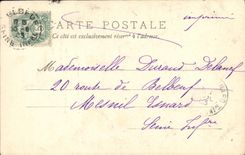 imprimé
CARTE POSTALE
Ce côté est exclusivement réservé à l'adresse.
Mademoiselle Durand
20 route de Belbeuf
Mesnil Esnard
Seine Infre